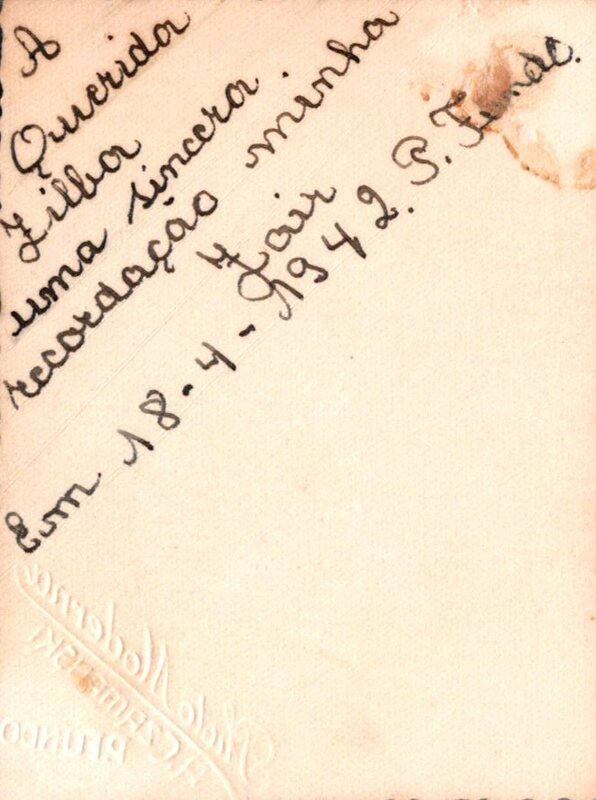 A
Querida
Zilba
uma sincera
recordação minha
Zair
Em 18-4-1942. P. Fundo.
Photo Moderna
A. CZAMANSKI
P. FUNDO